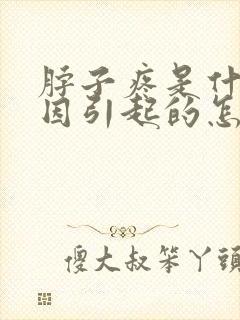 脖子疼是什
因引起的怎
傻大叔笨丫頭